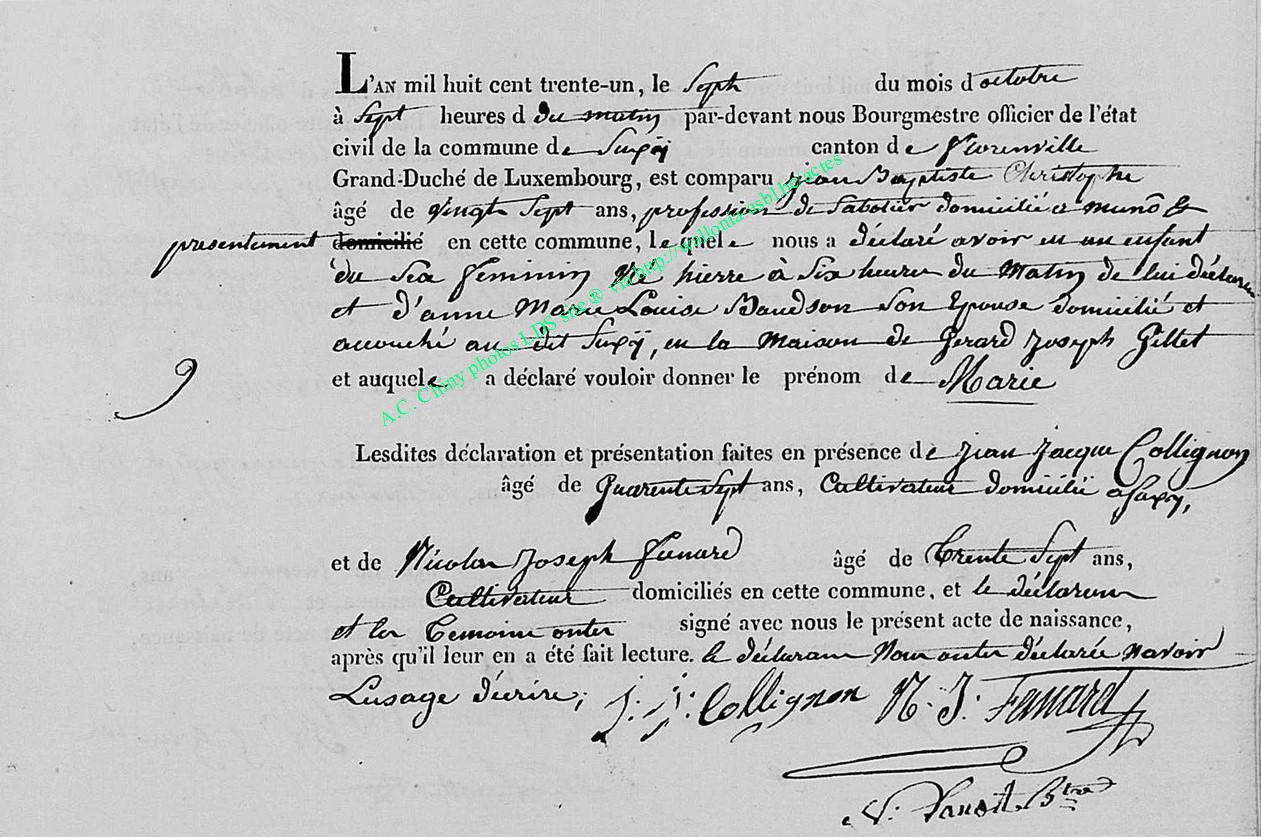 L'AN mil huit cent trente-un, le Sept du mois d octobre
à Sept heures d du matin par-devant nous Bourgmestre officier de l'état
civil de la commune de Sugÿ canton de florenville
Grand-Duché de Luxembourg, est comparu jean Baptiste Christophe
âgé de vingt Sept ans, profession de Sabotier domicilié a muno &
presentement domicilié en cette commune, lequele nous a déclaré avoir eu un enfant
du Sex féminin Né hierre à Six heures du Matin de lui déclaran
et d'anne Marie Louise Baudson Son Epouse domicilié et
accouché au dit Sugÿ, en la Maison de Gerard Joseph Gillet
9 et auquele a déclaré vouloir donner le prénom de Marie
A.C. Chiny photos LDS site® via http://wallonia-asbl.be/actes
Lesdites déclaration et présentation faites en présence de Jean Jacque Collignon
âgé de Quarente Sept ans, Cultivateur domicilié a Sugÿ,
et de Nicolas Joseph Fanard âgé de Trente Sept ans,
Cultivateur domiciliés en cette commune, et le déclarem
et les Temoine onter signé avec nous le présent acte de naissance,
après qu'il leur en a été fait lecture. le déclaram Nous onter déclarée navoir
Lusage décrire; J: J: Collignon N. J: Fanard
Btre